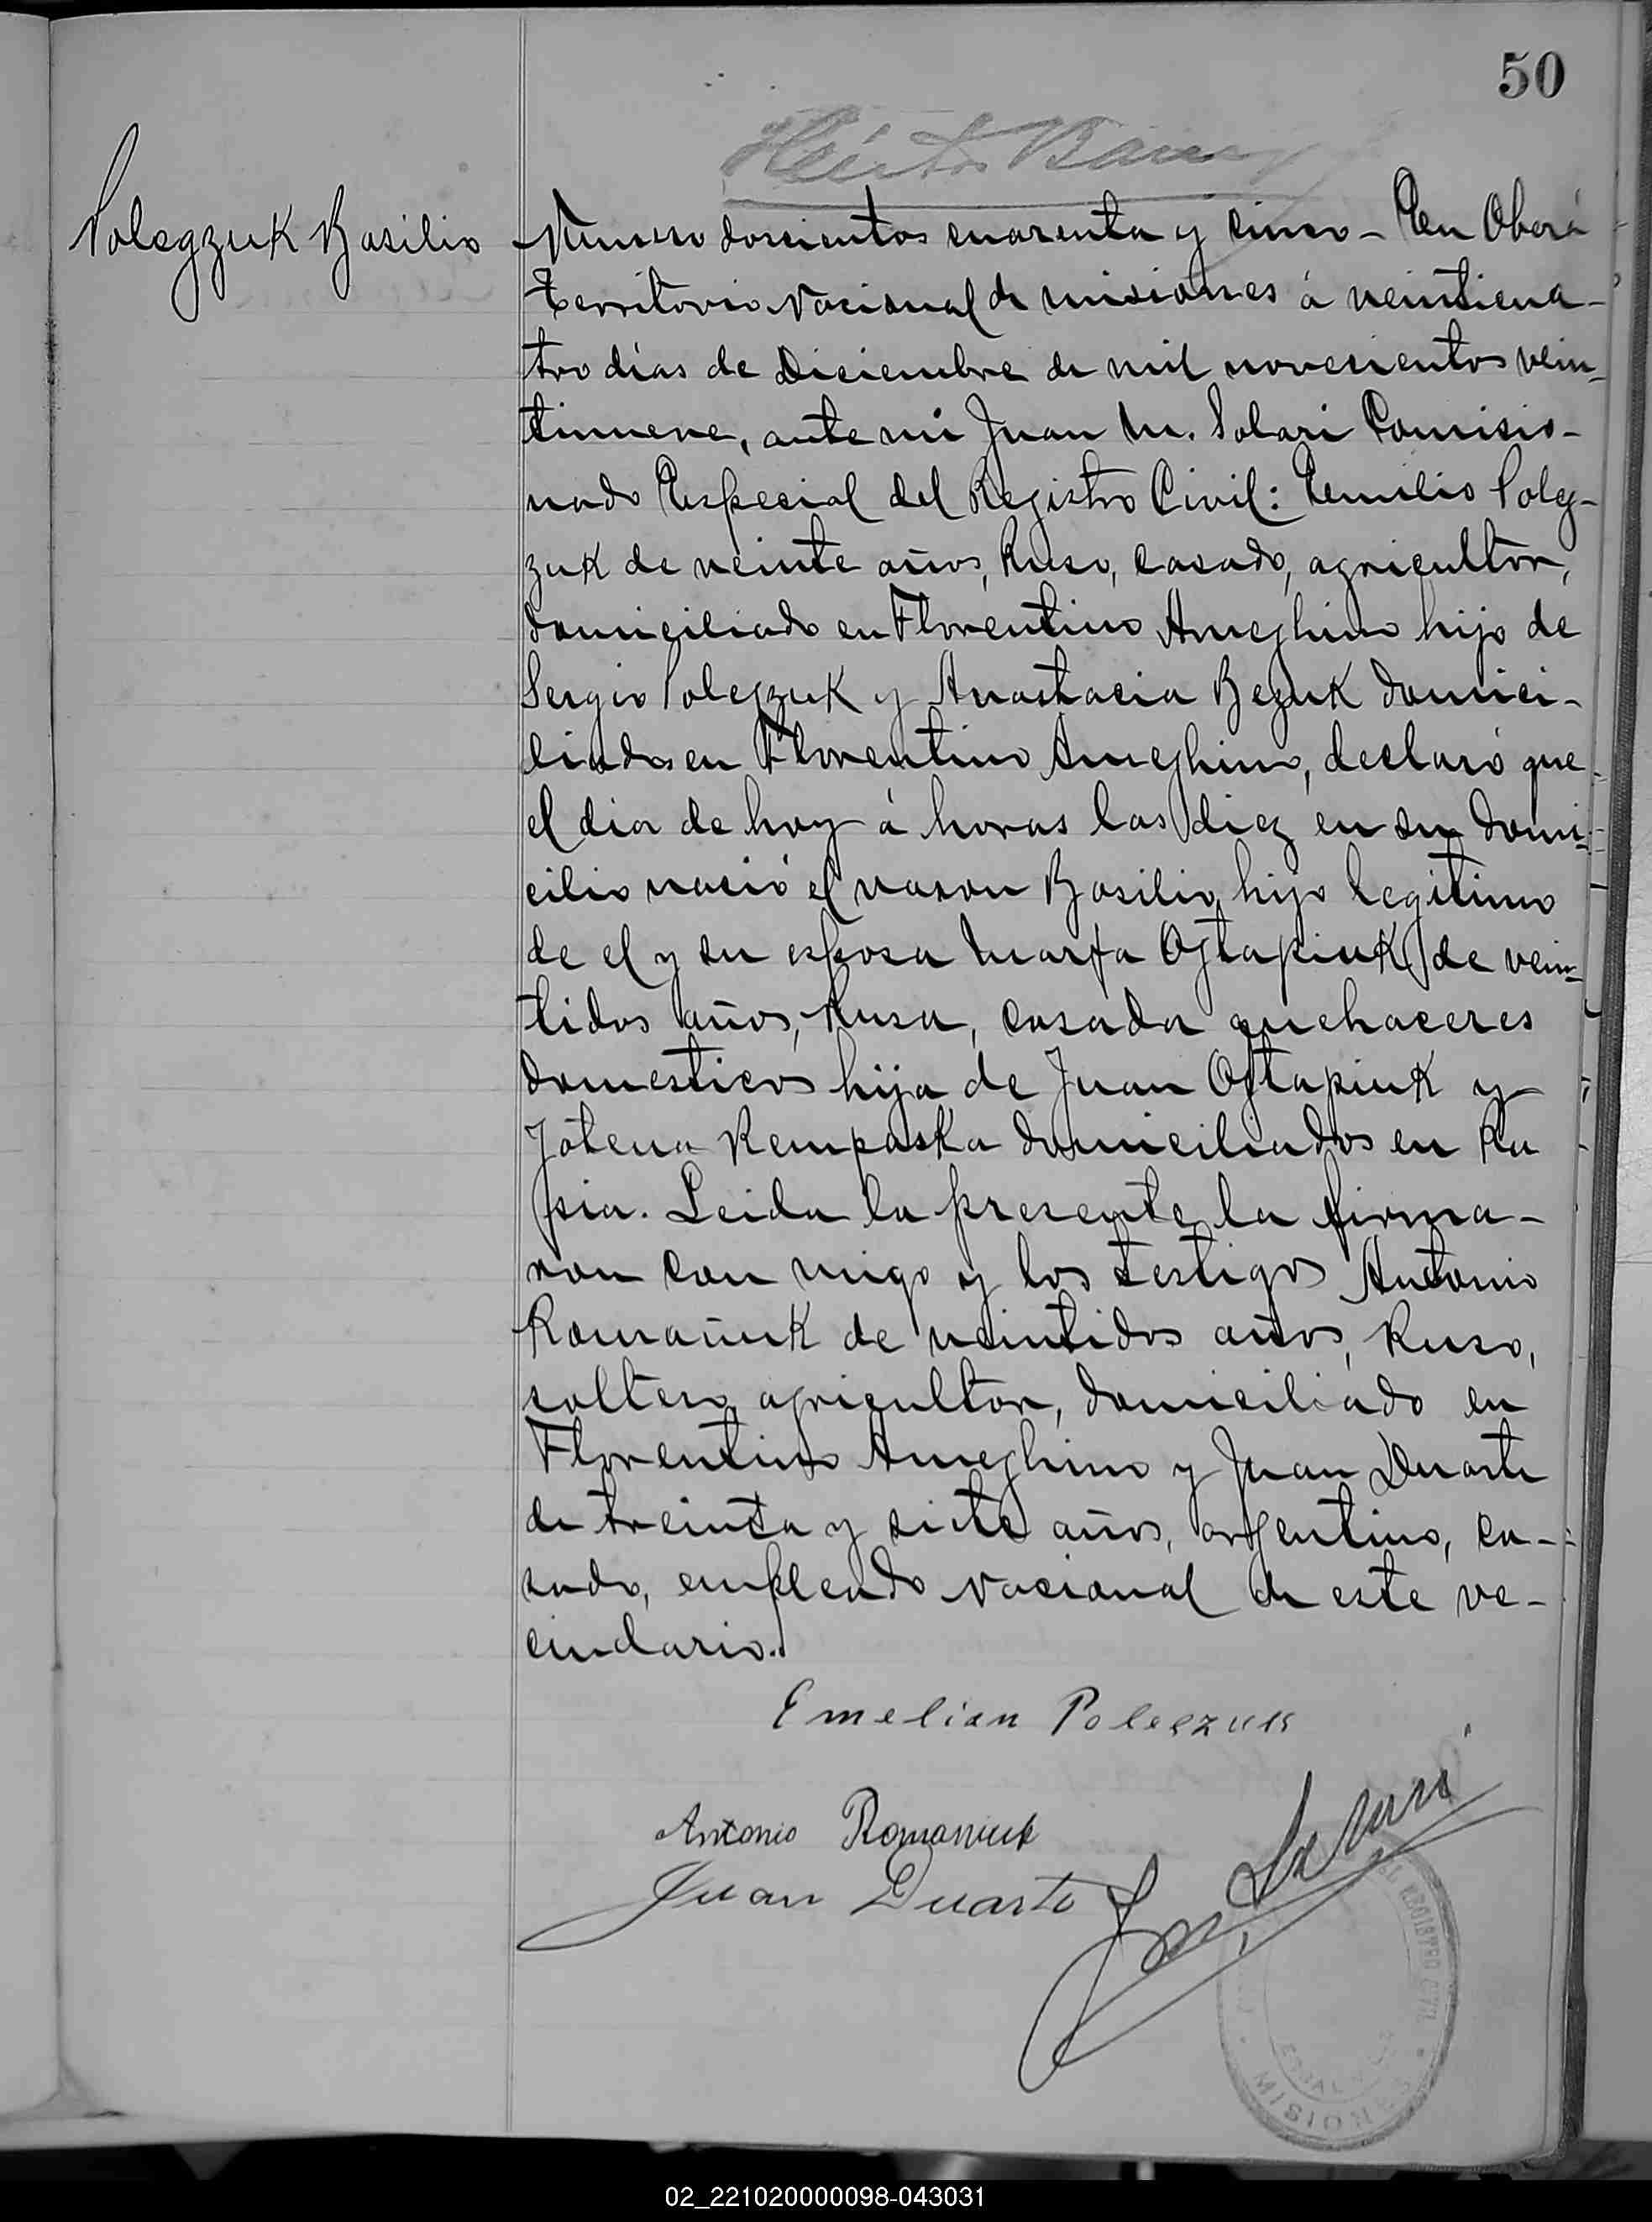 50
Polegzuk Basilio
Numero doscientos cuarenta y cinco - En Oberá
Territorio Nacional de misiones á veinticua-
tro días de Diciembre de mil novecientos vein-
tinueve, ante mi Juan M. Solari Comisio-
nado Especial del Registro Civil: Emilio Poleg-
zuk de veinte años, Ruso, casado, agricultor,
domiciliado en Florentino Ameghino hijo de
Sergio Polegzuk y Anastacia Bezuk domici-
liados en Florentino Ameghino, declaró que
el dia de hoy á horas las diez en su domi-
cilio nació el varon Basilio hijo legitimo
de el y su esposa Marta Ostapiuk de vein-
tidos años, Rusa, casada quehaceres
domesticos hija de Juan Ostapiuk y
Kempaska domiciliados en Ru
sia. Leida la presente la firma-
ron con migo y los testigos Antonio
Romañuk de veintidos años, Ruso,
soltero agricultor, domiciliado en
Florentino Ameghino y Juan Duarte
de treinta y siete años, argentino, ca-
sado, empleado Nacional de este ve-
cindario.
Emelian Poleczuk
Antonio Romaniuk
Juan Duarte
Solari
REGISTRO CIVIL
MISIONES
02_221020000098-043031